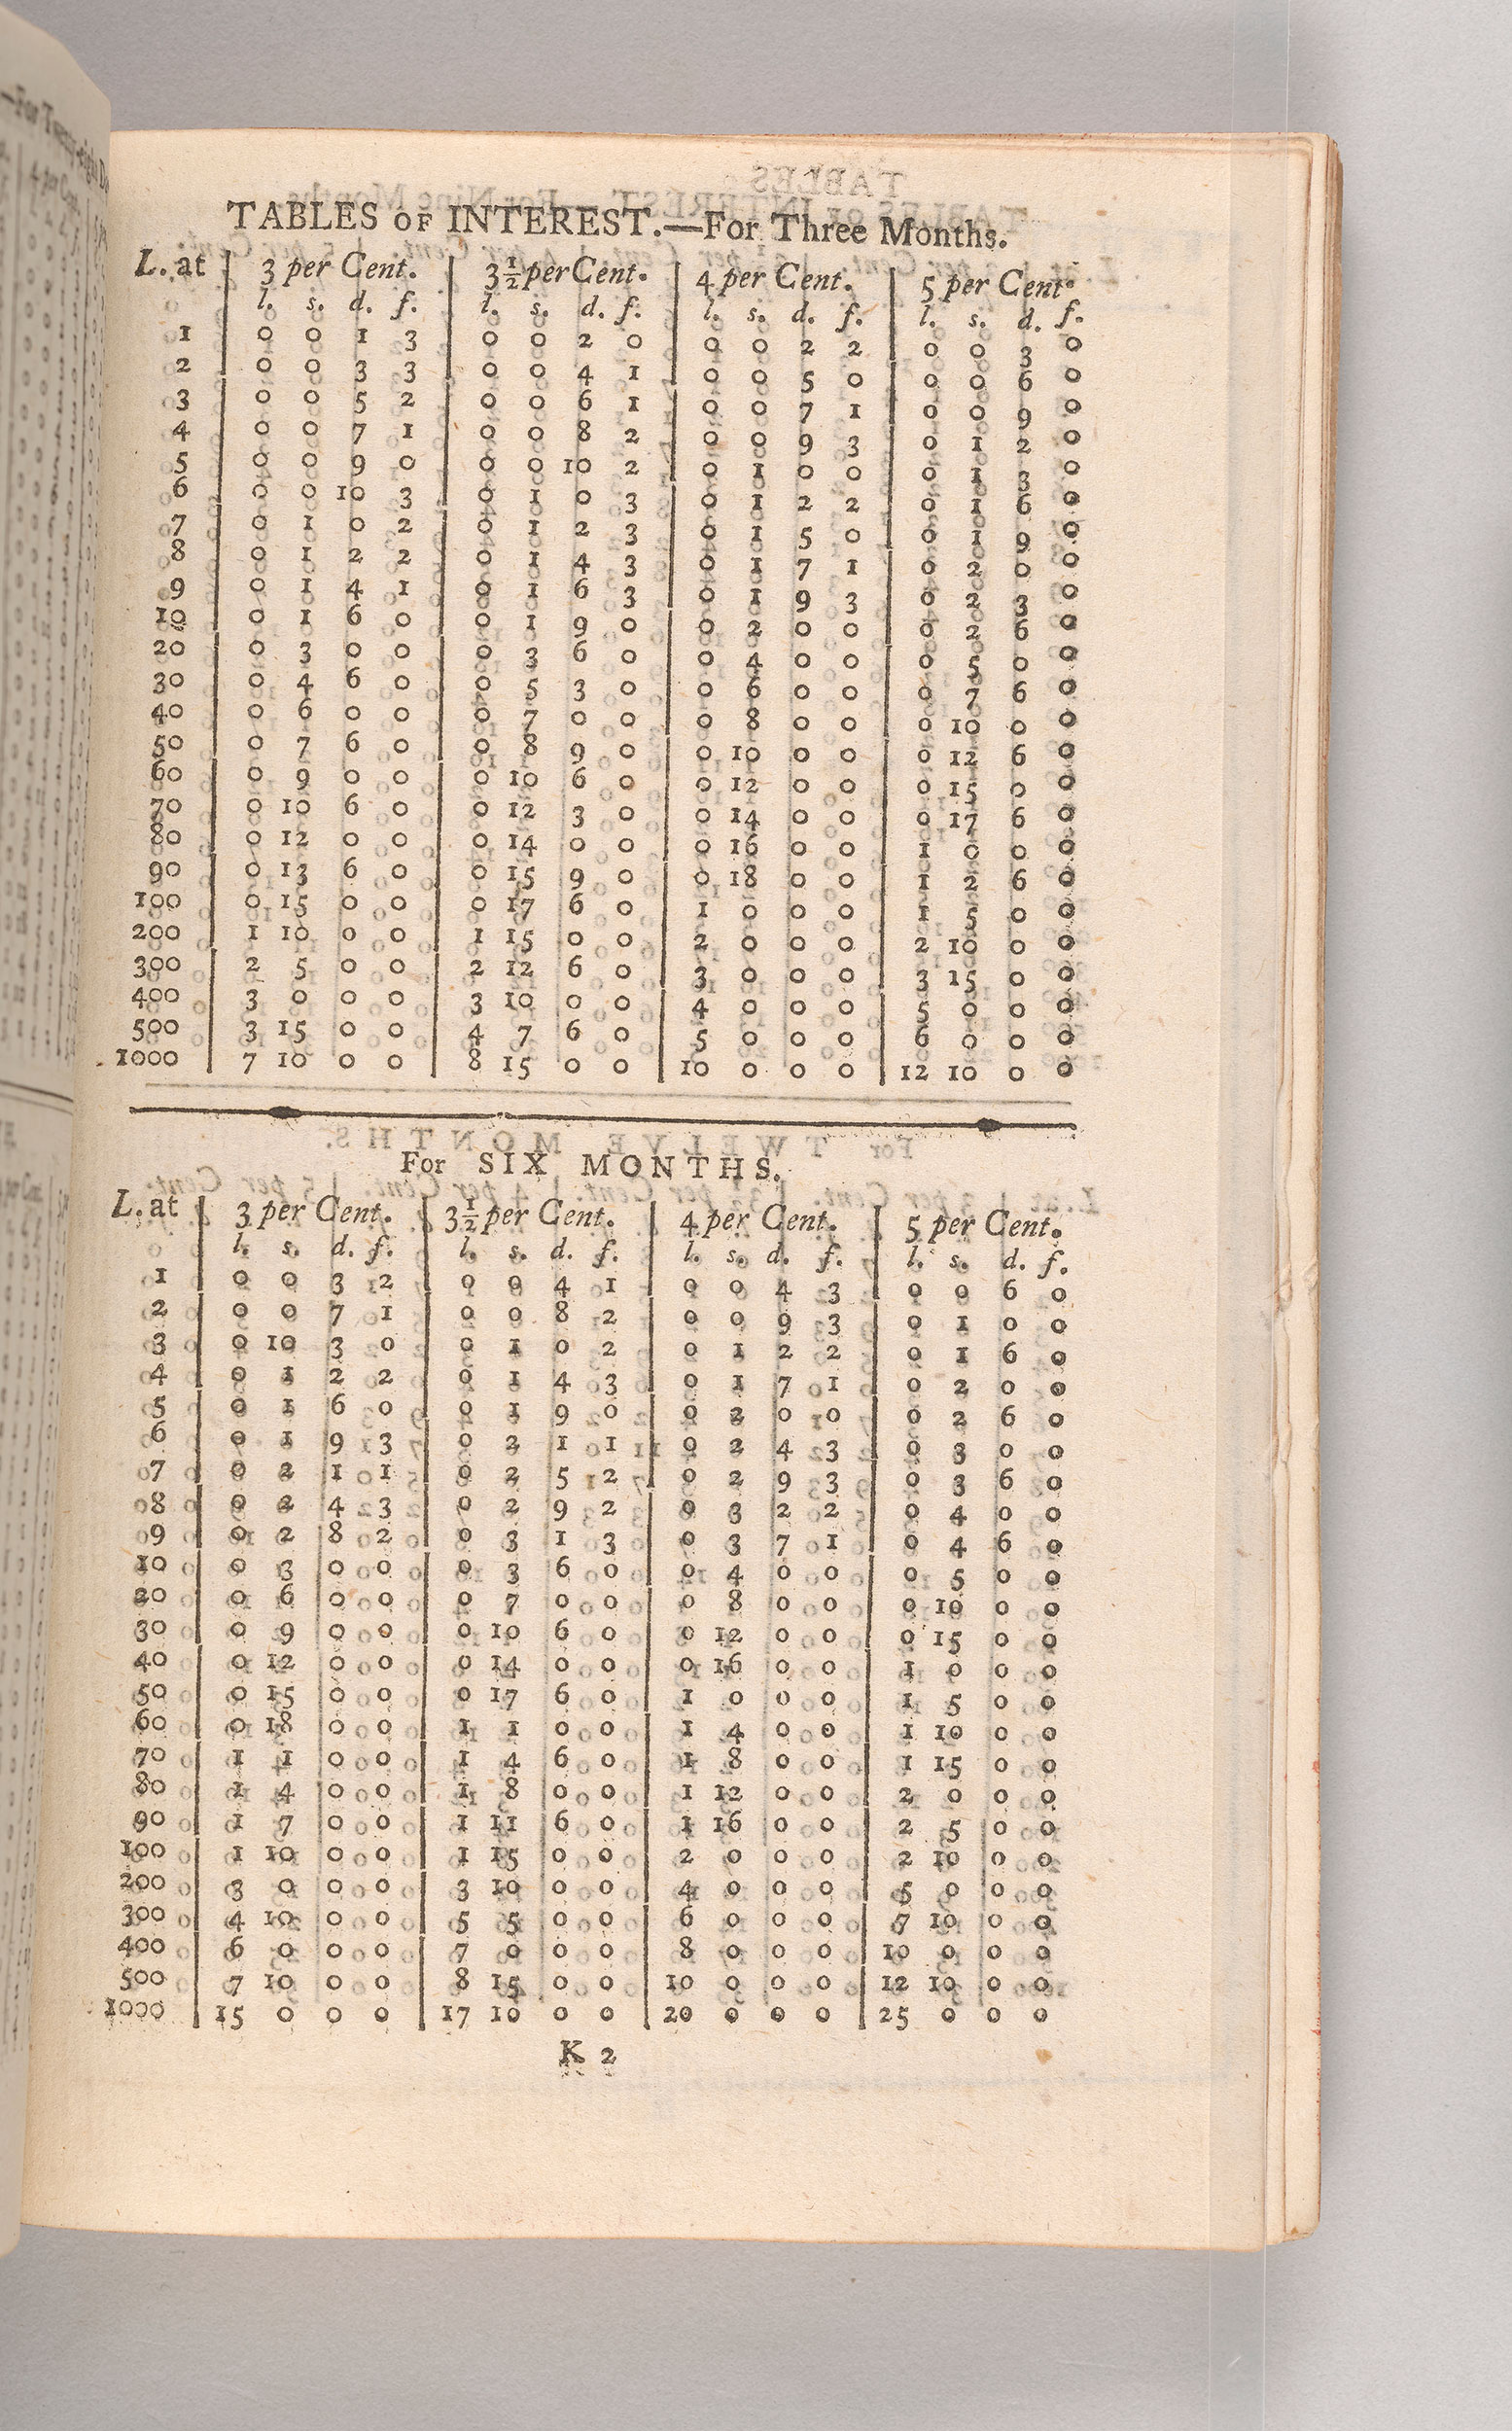 TABLES OF INTEREST.—For Three Months.
L. at | 3 per Cent. | 3½ per Cent. | 4 per Cent. | 5 per Cent.
l. s. d. f. | l. s. d. f. | l. s. d. f. | l. s. d. f.
1 | 0 0 1 3 | 0 0 2 0 | 0 0 2 2 | 0 0 3 0
2 | 0 0 3 3 | 0 0 4 1 | 0 0 5 0 | 0 0 6 0
3 | 0 0 5 2 | 0 0 6 1 | 0 0 7 1 | 0 0 9 0
4 | 0 0 7 1 | 0 0 8 2 | 0 0 9 3 | 0 1 2 0
5 | 0 0 9 0 | 0 0 10 2 | 0 1 0 0 | 0 1 3 0
6 | 0 0 10 3 | 0 1 0 3 | 0 1 2 2 | 0 1 6 0
7 | 0 1 0 2 | 0 1 2 3 | 0 1 5 0 | 0 1 9 0
8 | 0 1 2 2 | 0 1 4 3 | 0 1 7 1 | 0 2 0 0
9 | 0 1 4 1 | 0 1 6 3 | 0 1 9 3 | 0 2 3 0
10 | 0 1 6 0 | 0 1 9 0 | 0 2 0 0 | 0 2 6 0
20 | 0 3 0 0 | 0 3 6 0 | 0 4 0 0 | 0 5 0 0
30 | 0 4 6 0 | 0 5 3 0 | 0 6 0 0 | 0 7 6 0
40 | 0 6 0 0 | 0 7 0 0 | 0 8 0 0 | 0 10 0 0
50 | 0 7 6 0 | 0 8 9 0 | 0 10 0 0 | 0 12 6 0
60 | 0 9 0 0 | 0 10 6 0 | 0 12 0 0 | 0 15 0 0
70 | 0 10 6 0 | 0 12 3 0 | 0 14 0 0 | 0 17 6 0
80 | 0 12 0 0 | 0 14 0 0 | 0 16 0 0 | 1 0 0 0
90 | 0 13 6 0 | 0 15 9 0 | 0 18 0 0 | 1 2 6 0
100 | 0 15 0 0 | 0 17 6 0 | 1 0 0 0 | 1 5 0 0
200 | 1 10 0 0 | 1 15 0 0 | 2 0 0 0 | 2 10 0 0
300 | 2 5 0 0 | 2 12 6 0 | 3 0 0 0 | 3 15 0 0
400 | 3 0 0 0 | 3 10 0 0 | 4 0 0 0 | 5 0 0 0
500 | 3 15 0 0 | 4 7 6 0 | 5 0 0 0 | 6 0 0 0
1000 | 7 10 0 0 | 8 15 0 0 | 10 0 0 0 | 12 10 0 0
For SIX MONTHS.
L. at | 3 per Cent. | 3½ per Cent. | 4 per Cent. | 5 per Cent.
l. s. d. f. | l. s. d. f. | l. s. d. f. | l. s. d. f.
1 | 0 0 3 2 | 0 0 4 1 | 0 0 4 3 | 0 0 6 0
2 | 0 0 7 1 | 0 0 8 2 | 0 0 9 3 | 0 1 0 0
3 | 0 10 3 0 | 0 1 0 2 | 0 1 2 2 | 0 1 6 0
4 | 0 1 2 2 | 0 1 4 3 | 0 1 7 1 | 0 2 0 0
5 | 0 1 6 0 | 0 1 9 0 | 0 2 0 0 | 0 2 6 0
6 | 0 1 9 3 | 0 2 1 1 | 0 2 4 3 | 0 3 0 0
7 | 0 2 1 1 | 0 2 5 2 | 0 2 9 3 | 0 3 6 0
8 | 0 2 4 3 | 0 2 9 2 | 0 3 2 2 | 0 4 0 0
9 | 0 2 8 2 | 0 3 1 3 | 0 3 7 1 | 0 4 6 0
10 | 0 3 0 0 | 0 3 6 0 | 0 4 0 0 | 0 5 0 0
20 | 0 6 0 0 | 0 7 0 0 | 0 8 0 0 | 0 10 0 0
30 | 0 9 0 0 | 0 10 6 0 | 0 12 0 0 | 0 15 0 0
40 | 0 12 0 0 | 0 14 0 0 | 0 16 0 0 | 1 0 0 0
50 | 0 15 0 0 | 0 17 6 0 | 1 0 0 0 | 1 5 0 0
60 | 0 18 0 0 | 1 1 0 0 | 1 4 0 0 | 1 10 0 0
70 | 1 1 0 0 | 1 4 6 0 | 1 8 0 0 | 1 15 0 0
80 | 1 4 0 0 | 1 8 0 0 | 1 12 0 0 | 2 0 0 0
90 | 1 7 0 0 | 1 11 6 0 | 1 16 0 0 | 2 5 0 0
100 | 1 10 0 0 | 1 15 0 0 | 2 0 0 0 | 2 10 0 0
200 | 3 0 0 0 | 3 10 0 0 | 4 0 0 0 | 5 0 0 0
300 | 4 10 0 0 | 5 5 0 0 | 6 0 0 0 | 7 10 0 0
400 | 6 0 0 0 | 7 0 0 0 | 8 0 0 0 | 10 0 0 0
500 | 7 10 0 0 | 8 15 0 0 | 10 0 0 0 | 12 10 0 0
1000 | 15 0 0 0 | 17 10 0 0 | 20 0 0 0 | 25 0 0 0
K 2